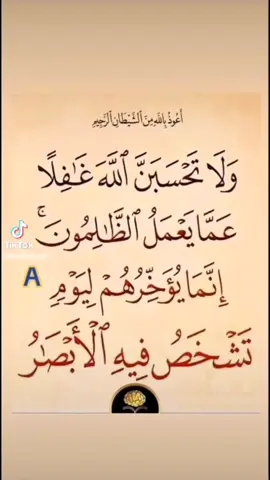 أَعُوذُ بِاللَّهِ مِنَ ٱلشَّيْطَانِ ٱلرَّجِيمِ
وَلَا تَحْسَبَنَّ ٱللَّهَ غَٰفِلًا
عَمَّا يَعْمَلُ ٱلظَّٰلِمُونَ ۚ
إِنَّمَا يُؤَخِّرُهُمْ لِيَوْمٍ
تَشْخَصُ فِيهِ ٱلْأَبْصَٰرُ
TikTok
A